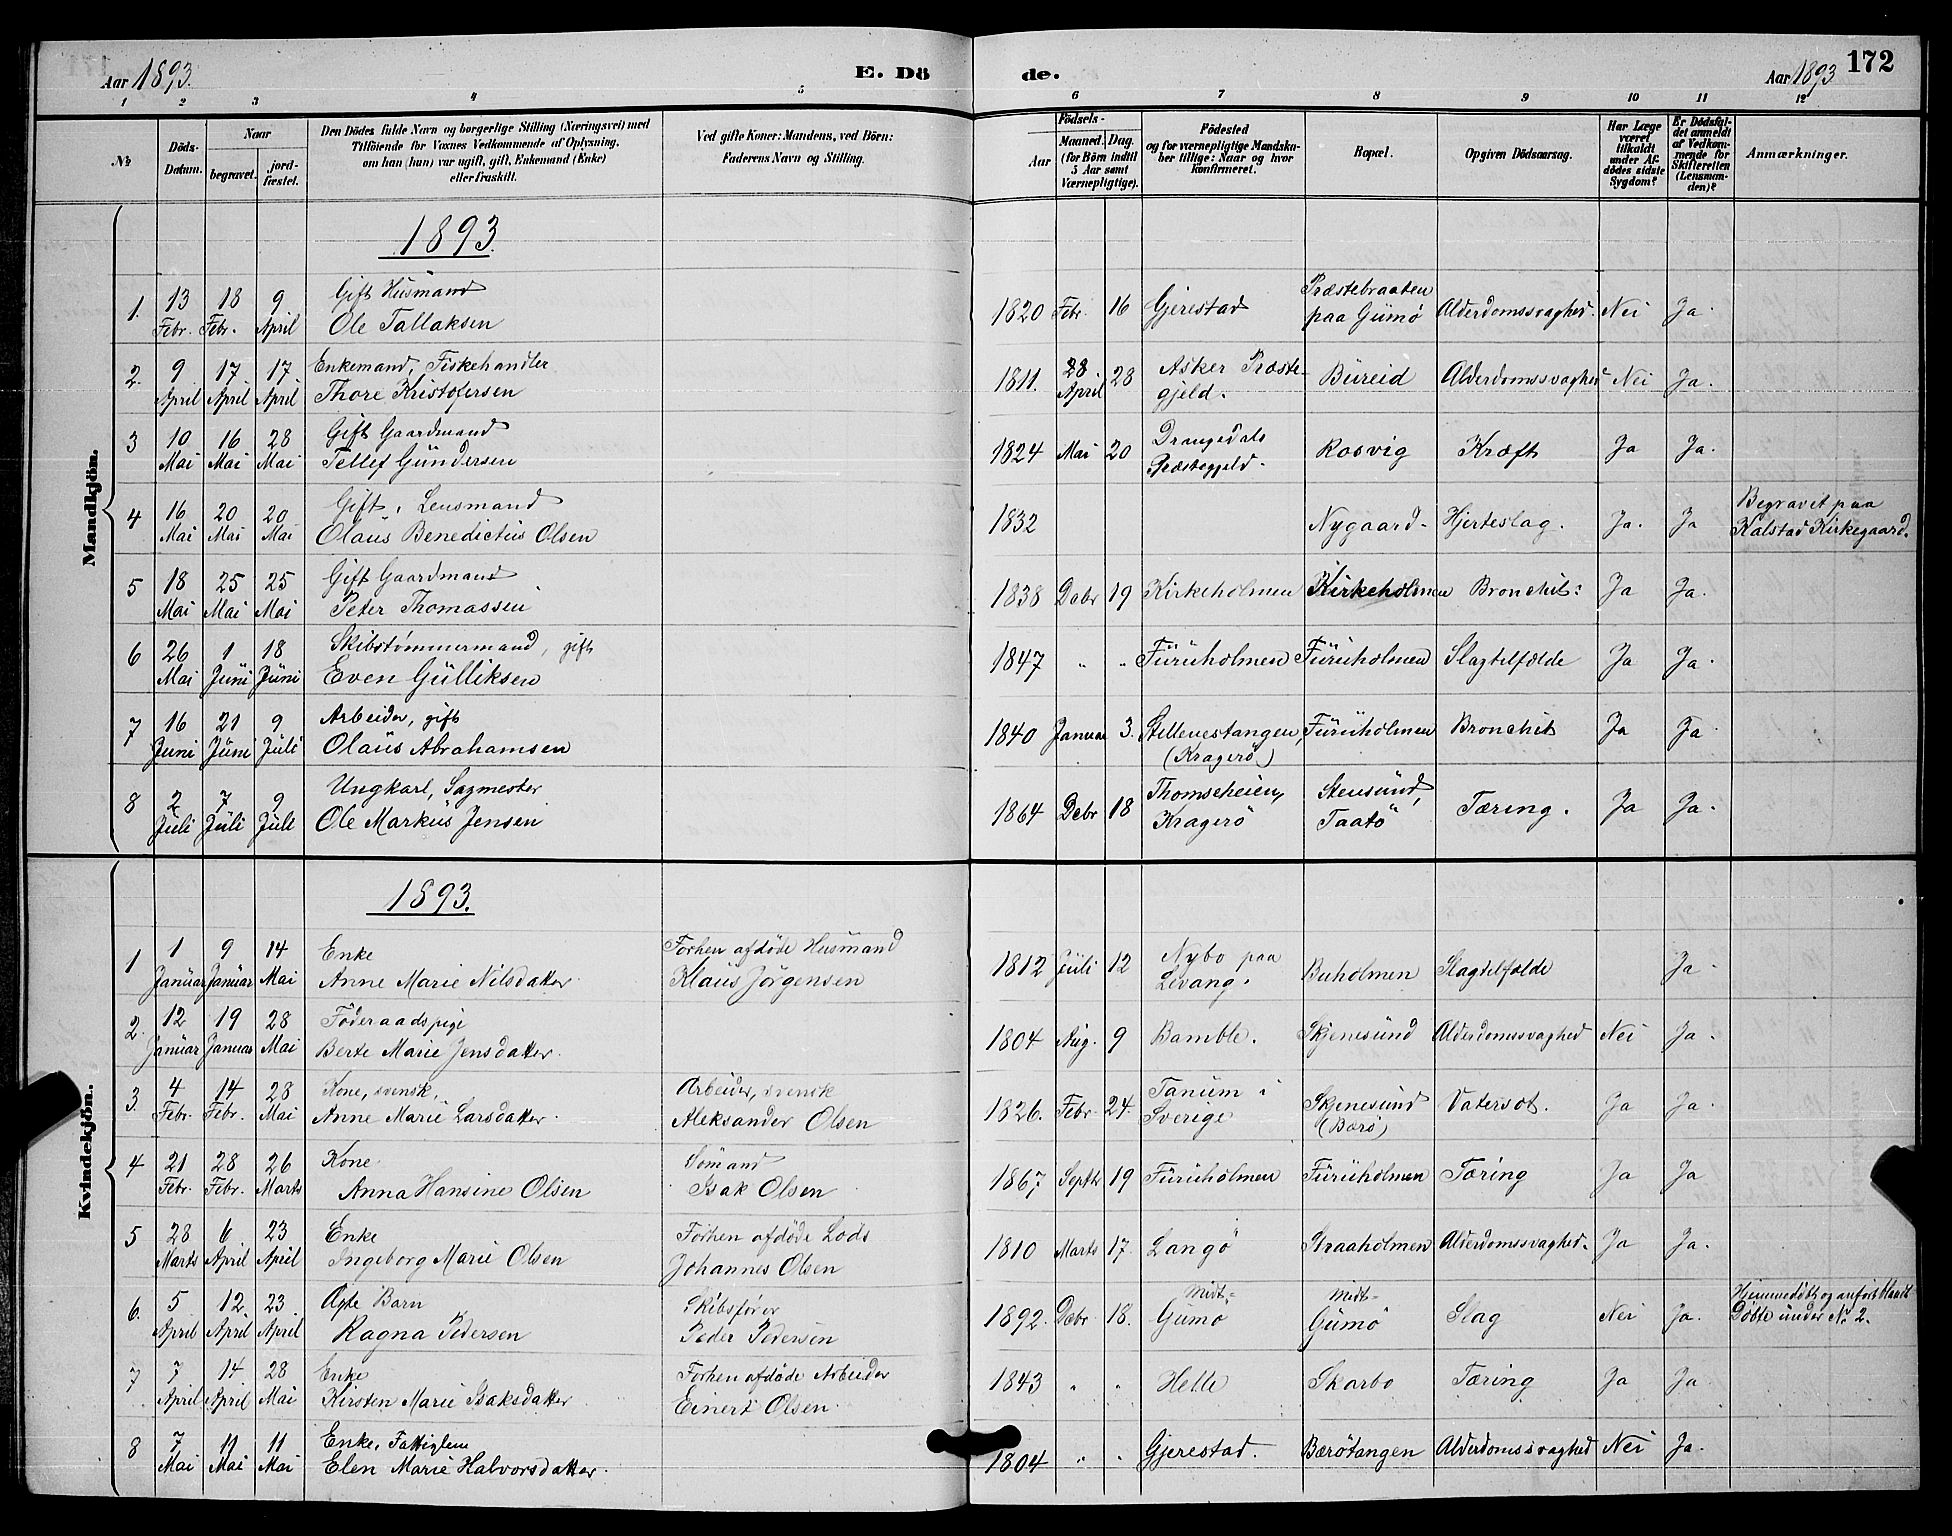 Aar 1893.
E. Dö
de.
Aar 1893
172
1 2 3 4 5 6 7 8 9 10 11 12
No
Döds-Datum.
Naar
begravet.
jord-fæstet.
Den Dödes fulde Navn og borgerlige Stilling (Næringsvei) med
Tilföiende for Voxnes Vedkommende af Oplysning,
om han (hun) var ugift, gift, Enkemand (Enke)
eller fraskilt.
Ved gifte Koner: Mandens, ved Börn:
Faderens Navn og Stilling.
Födsels-
Aar
Maaned. Dag.
(for Börn indtil
5 Aar samt
Værnepligtige).
Födested
og for værnepligtige Mandska-
ber tillige: Naar og hvor
konfirmeret.
Bopæl.
Opgiven Dödsaarsag.
Har Læge
været
tilkaldt
under Af-
dödes sidste
Sygdom?
Er Dödsfal-
det anmeldt
af Vedkom-
mende for
Skifteretten
(Lensman-
den)?
Anmærkninger.
Mandkjön.
1893.
1. 13 Febr. 18 Febr. 9 April Gift Husmand
Ole Tallaksen 1820 Febr. 16 Gjerestad Præstebraaten paa Gumö Alderdomssvaghed. Nei Ja.
2. 9 April 17 April 17 April Enkemand, Fiskehandler
Thore Kristofersen 1811. 28 April 28 Asker Præste-gjeld. Bureid Alderdomssvaghed Nei Ja.
3 10 Mai 16 Mai 28 Mai Gift Gaardmand
Tellef Gundersen 1824 Mai 20 Drangedals Præstegjeld. Rosvig Kræft Ja Ja.
4 16 Mai 20 Mai 20 Mai Gift, Lensmand
Olaus Benedictus Olsen 1832 Nygaard. Hjerteslag. Ja. Ja Begravet paa
Kalstad Kirkegaard.
5 18 Mai 25 Mai 25 Mai Gift Gaardmand
Peter Thomassen 1838 Debr 19 Kirkeholmen Kirkeholmen Bronchit: Ja Ja.
6 26 Mai 1 Juni 18 Juni Skibstømmermand, gift
Even Gulliksen 1847 " " Furuholmen Furuholmen Slagtilfælde Ja Ja.
7 16 Juni 21 Juni 9 Juli Arbeider, gift
Olaus Abrahamsen 1840 Januar 3. Stillnestangen, (Kragerø) Furuholmen Bronchit Ja Ja
8 2 Juli 7 Juli 9 Juli Ungkarl, Sagmester
Ole Markus Jensen 1864 Debr 18 Thomseheien, Kragerö Stensund, Taatö Tæring. Ja Ja.
Kvindekjön.
1893.
1 1 Januar 9 Januar 14 Mai Enke
Anne Marie Nilsdatter Forhen afdöde Husmand
Klaus Jörgensen 1812 Juli 12 Nybo paa Levang. Buholmen Slagtilfælde Ja.
2. 12 Januar 19 Januar 28 Mai Föderaadspige
Berte Marie Jensdatter. 1804 Aug. 9 Bamble. Skjenesund Alderdomssvaghed Nei Ja.
3. 4 Febr. 14 Febr. 28 Mai Kone, svensk,
Anne Marie Larsdatter. Arbeider, svensk
Aleksander Olsen 1826. Febr. 24. Tanum i Sverige Skjenesund (Barö) Vatersot. Ja Ja.
4 21 Febr. 28 Febr. 26 Marts Kone
Anna Hansine Olsen Sömand
Isak Olsen 1867 Septb 19 Furuholmen Furuholmen Tæring Ja Ja
5 28 Marts 6 April 23 April Enke
Ingeborg Marie Olsen Forhen afdöde Lods
Johannes Olsen 1810 Marts 17. Langö Straaholmen Alderdomssvaghed. Ja Ja.
6. 5 April 12 April 23 April Ægte Barn
Ragna Pedersen Skibsfører
Peder Pedersen 1892. Debr 18. Midt-Gumö Midt-Gumö Slag Nei Ja. Hjemmedöbt og anfört blandt
Döbte under No 2.
7 7 April 14 April 28 Mai Enke
Kirsten Marie Isaksdatter Forhen afdöde Arbeider
Einert Olsen. 1843 " " Helle Skarbo Tæring Ja Ja.
8 7 Mai 11 Mai 11 Mai Enke, Fattiglem
Elen Marie Halvorsdatter. 1804 " " Gjerestad. Barötangen Alderdomssvaghed Nei Ja.